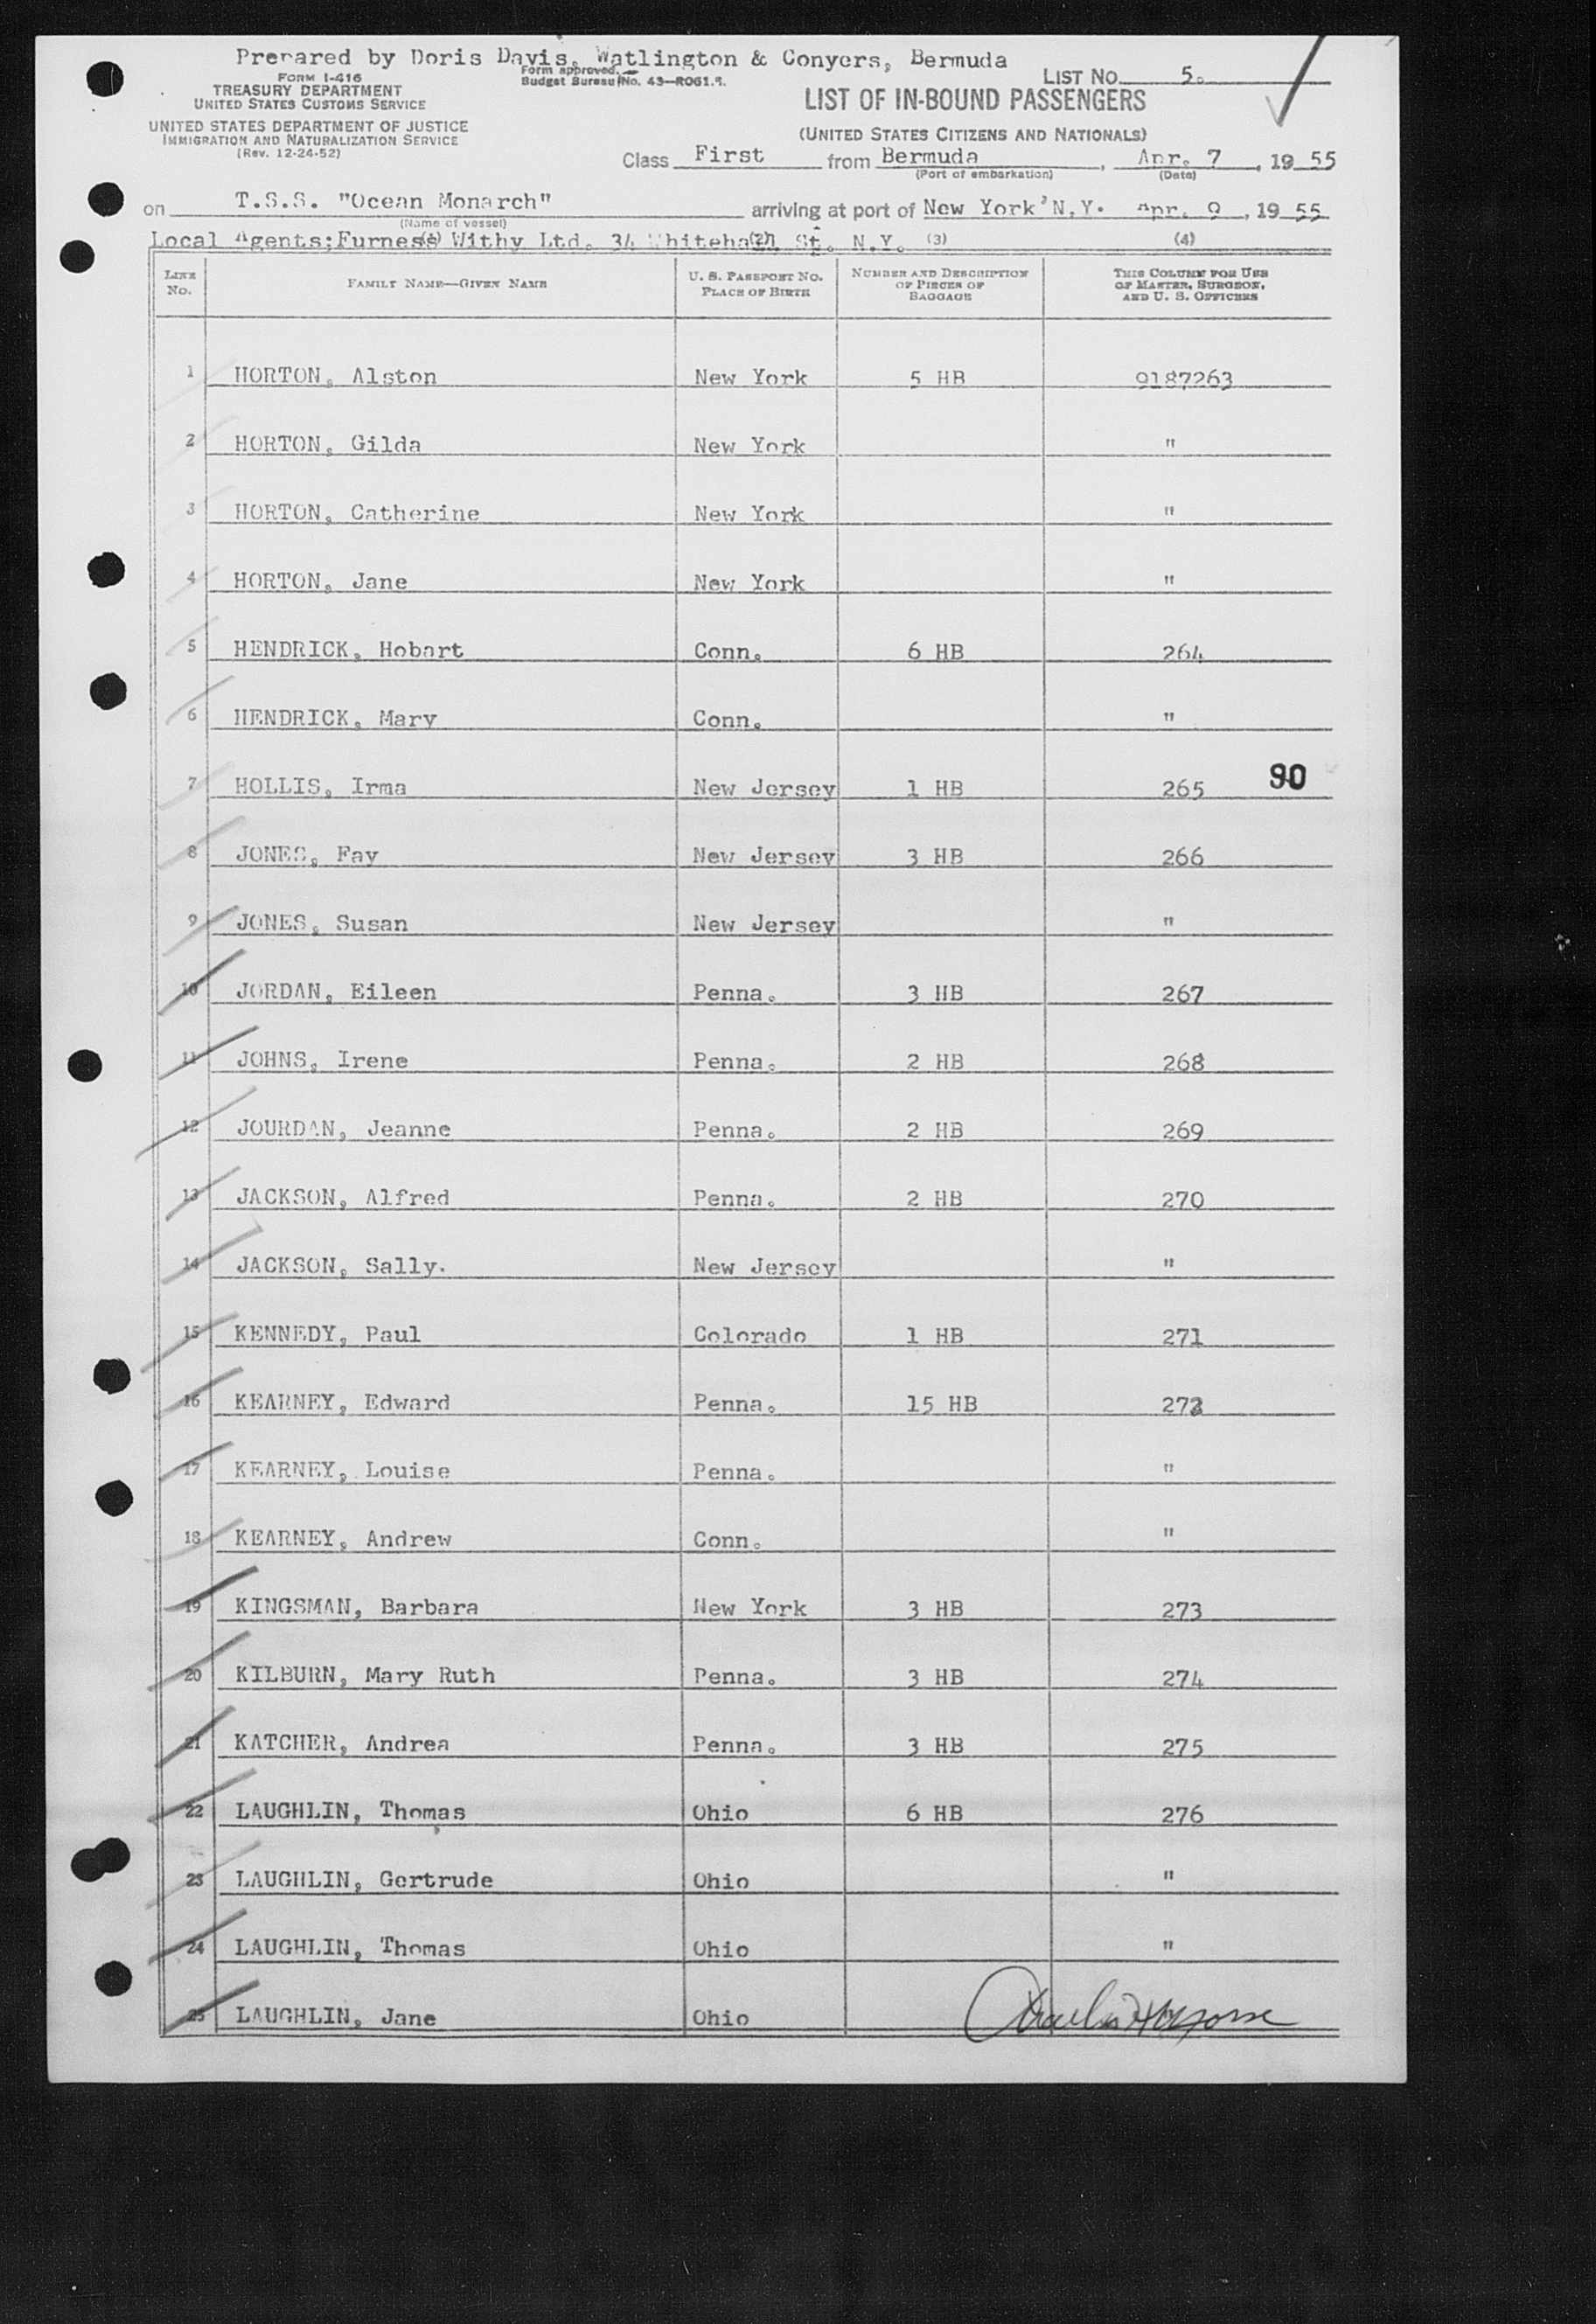 Prepared by Doris Davis, Watlington & Conyers, Bermuda
FORM I-416
TREASURY DEPARTMENT
UNITED STATES CUSTOMS SERVICE
UNITED STATES DEPARTMENT OF JUSTICE
IMMIGRATION AND NATURALIZATION SERVICE
(Rev. 12-24-52)
Form approved.
Budget Bureau No. 43-R061.
LIST No. 5.
LIST OF IN-BOUND PASSENGERS
(UNITED STATES CITIZENS AND NATIONALS)
Class First from Bermuda, Apr. 7, 1955
(Port of embarkation) (Date)
on T.S.S. "Ocean Monarch" arriving at port of New York, N.Y. Apr. 9, 1955
(Name of vessel)
Local Agents: Furness Withy Ltd. 34 Whitehall St. N.Y.
(1) (2) (3) (4)
LINE No. FAMILY NAME—GIVEN NAME U. S. PASSPORT NO. PLACE OF BIRTH NUMBER AND DESCRIPTION OF PIECES OF BAGGAGE THIS COLUMN FOR USE OF MASTER, SURGEON, AND U. S. OFFICERS
1 HORTON, Alston New York 5 HB 9187263
2 HORTON, Gilda New York "
3 HORTON, Catherine New York "
4 HORTON, Jane New York "
5 HENDRICK, Hobart Conn. 6 HB 264
6 HENDRICK, Mary Conn. "
7 HOLLIS, Irma New Jersey 1 HB 265 90
8 JONES, Fay New Jersey 3 HB 266
9 JONES, Susan New Jersey "
10 JORDAN, Eileen Penna. 3 HB 267
11 JOHNS, Irene Penna. 2 HB 268
12 JOURDAN, Jeanne Penna. 2 HB 269
13 JACKSON, Alfred Penna. 2 HB 270
14 JACKSON, Sally. New Jersey "
15 KENNEDY, Paul Colorado 1 HB 271
16 KEARNEY, Edward Penna. 15 HB 272
17 KEARNEY, Louise Penna. "
18 KEARNEY, Andrew Conn. "
19 KINGSMAN, Barbara New York 3 HB 273
20 KILBURN, Mary Ruth Penna. 3 HB 274
21 KATCHER, Andrea Penna. 3 HB 275
22 LAUGHLIN, Thomas Ohio 6 HB 276
23 LAUGHLIN, Gertrude Ohio "
24 LAUGHLIN, Thomas Ohio "
25 LAUGHLIN, Jane Ohio